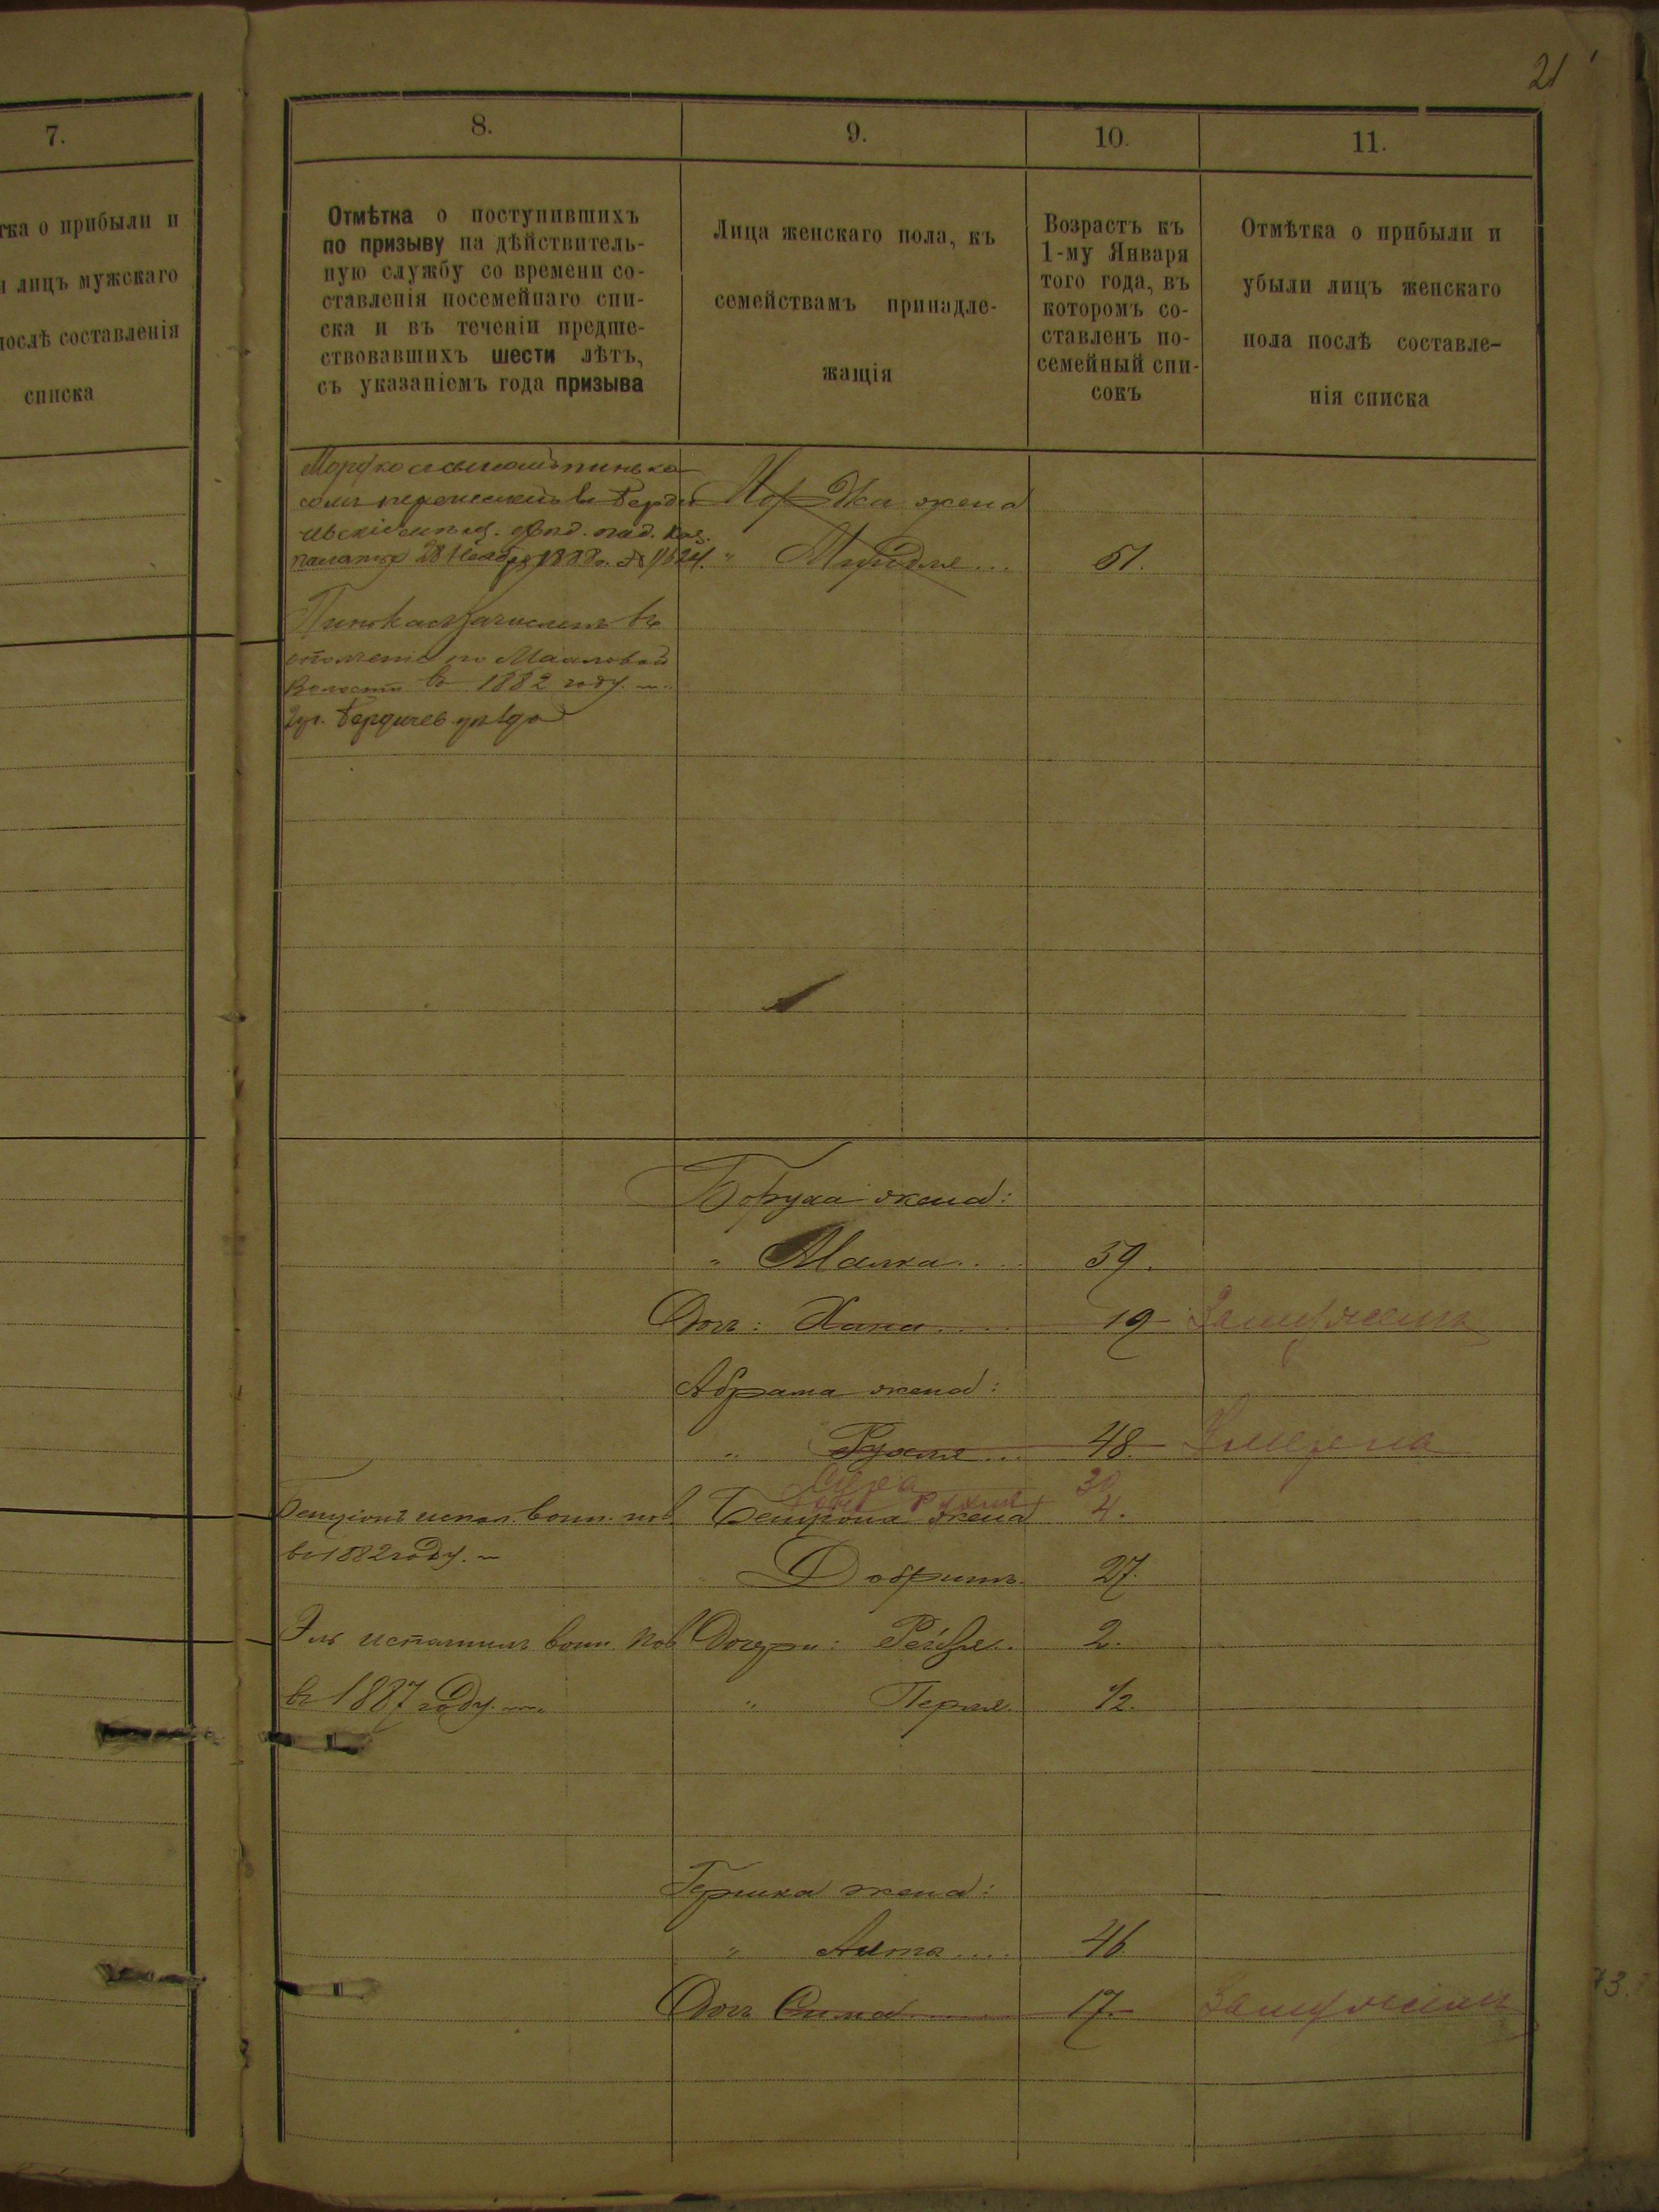 21
7.
8.
9.
10.
11.
тка о прибыли и
и лицъ мужскаго
послѣ составленія
списка
Отмѣтка о поступившихъ
по призыву на дѣйствитель-
ную службу со времени со-
ставленія посемейнаго спи-
ска и въ теченіи предше-
ствовавшихъ шести лѣтъ,
съ указаніемъ года призыва
Лица женскаго пола, къ
семействамъ принадле-
жащія
Возрастъ къ
1-му Января
того года, въ
которомъ со-
ставленъ по-
семейный спи-
сокъ
Отмѣтка о прибыли и
убыли лицъ женскаго
пола послѣ составле-
нія списка
Мордко съ сыномъ Пинькасомъ
перечисленъ въ
палаты 28 Ноября
Пинькасъ зачисленъ въ
ополченіе по
волости въ 1882 году.
Бердичев. уѣзда
жена
" 51.
Боруха жена:
" Малка.... 39.
Дочь: Хана.... 19 Замужемъ
Абрама жена:
" Рухля... 48. Умерла
Сура 30
4.
испол. воин. пов.
въ 1882 году.
жена
27.
Эль исполнилъ воин. пов
въ 1887 году.
Дочери: Рейзя.. 2.
" Перля. 1/2.
Гершка жена:
" 46
Дочь Сима.... 17. Замужемъ
73.